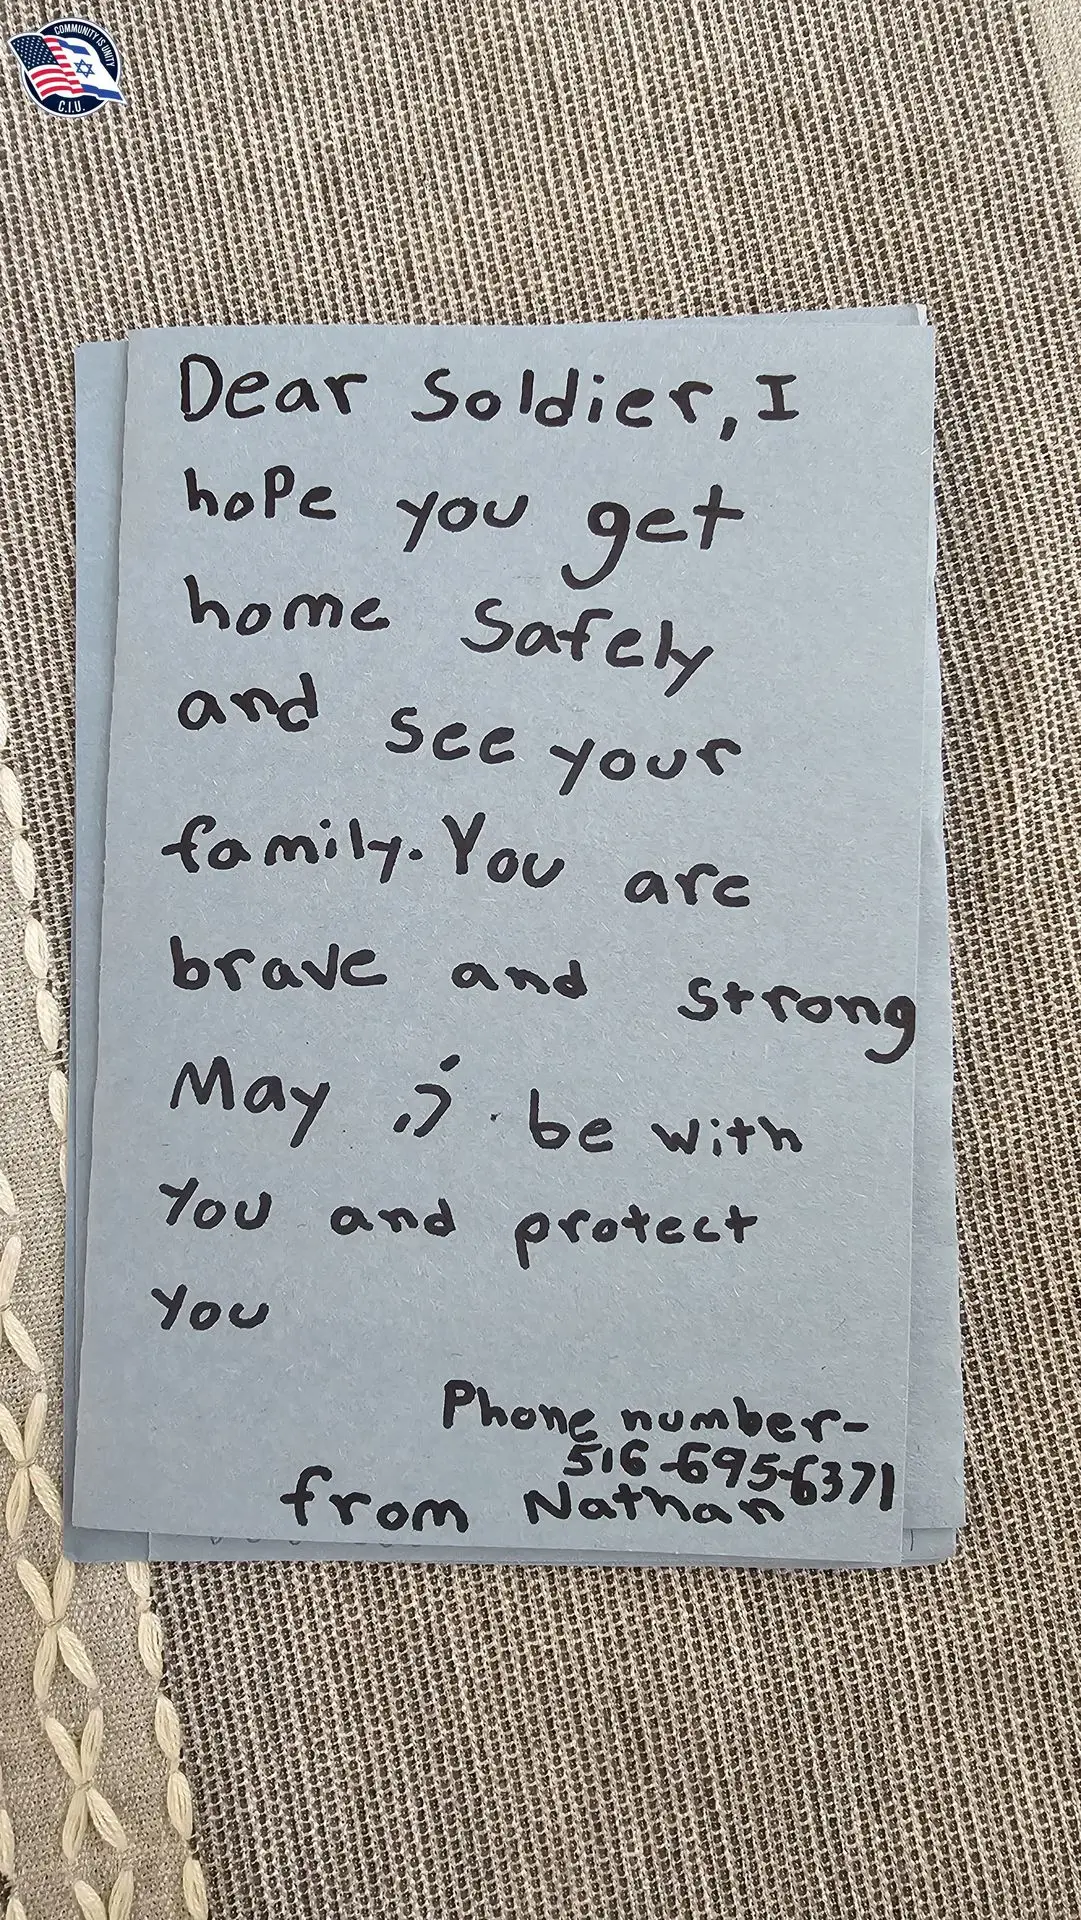 COMMUNITY IS UNITY
C.I.U.
Dear Soldier, I
hope you get
home Safely
and see your
family. You are
brave and strong
May be with
You and protect
you
Phone number-
516-695-6371
from Nathan